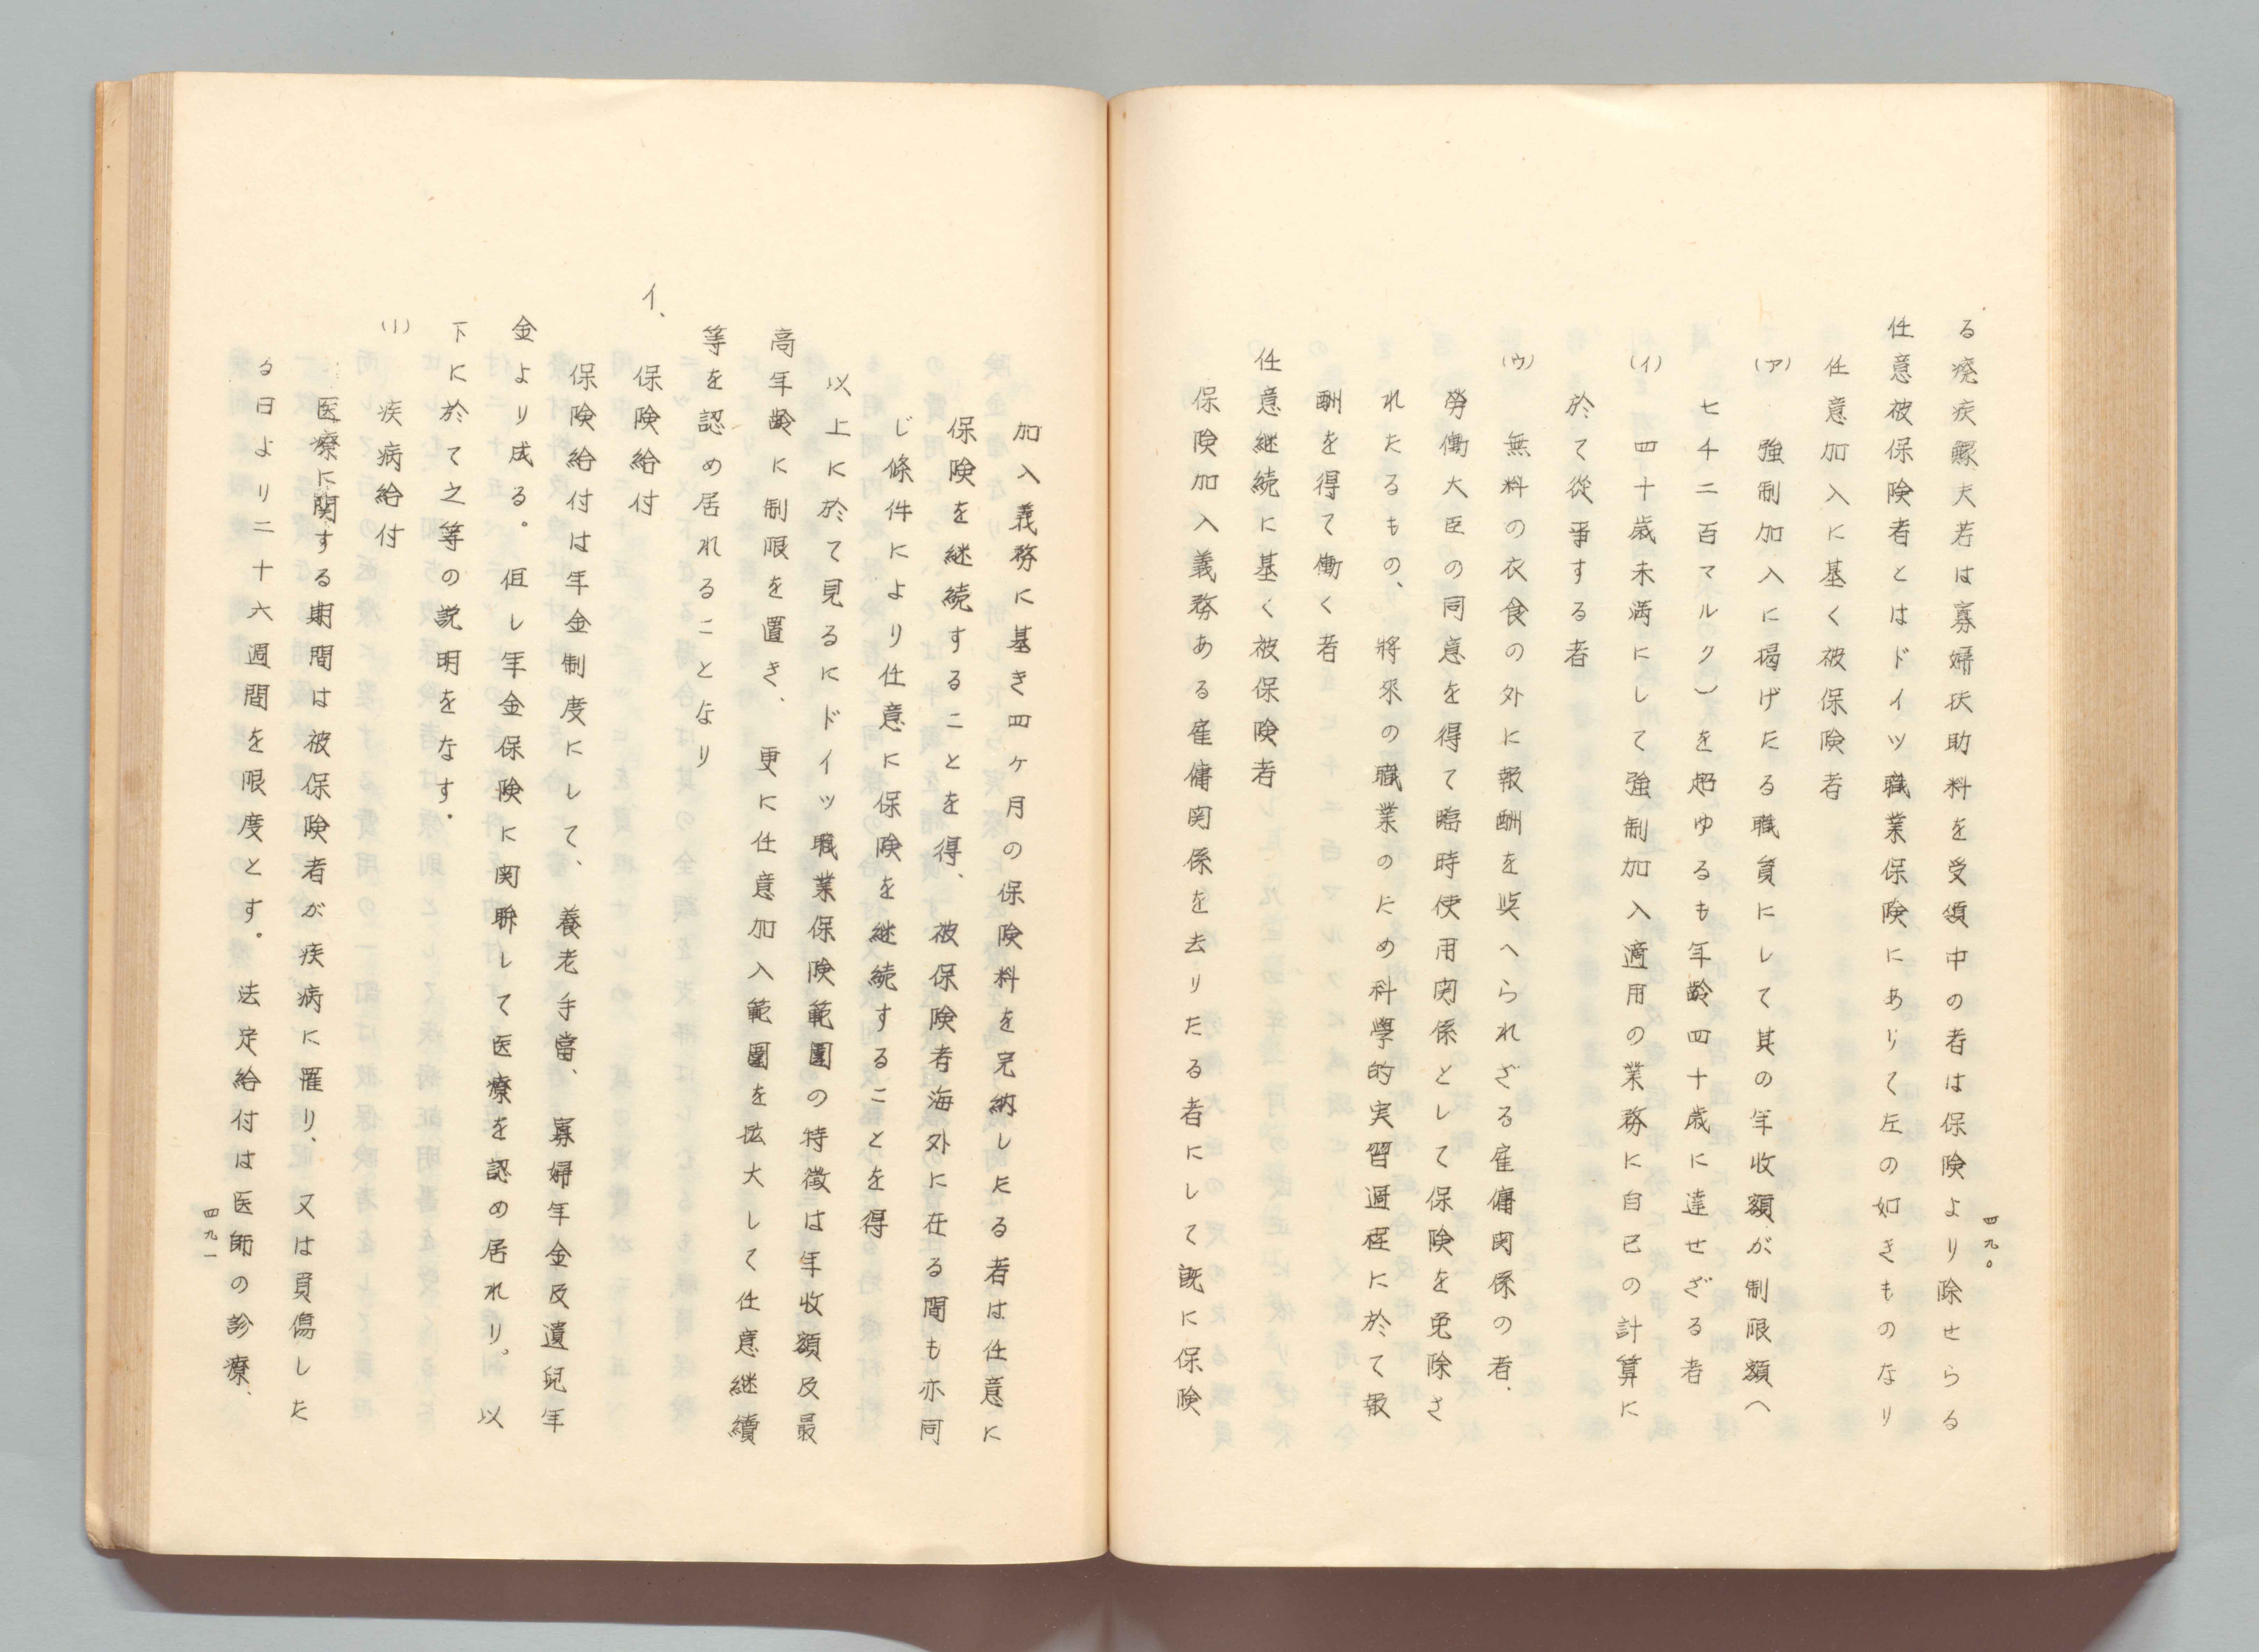 る癈疾鰥夫若は寡婦扶助料を受領中の者は保険より除せらる
任意被保険者とはドイツ職業保険にありて左の如きものなり
任意加入に基く被保険者
(ア)強制加入に掲げたる職員にして其の年收額が制限額へ
七千二百マルク)を超ゆるも年齢四十歳に達せざる者
(イ)四十歳未満にして強制加入適用の業務に自己の計算に
於て從事する者
(ウ)無料の衣食の外に報酬を与へられざる雇傭関係の者、
勞働大臣の同意を得て臨時使用関係として保険を免除さ
れたるもの、將來の職業のため科學的実習過程に於て報
酬を得て働く者
任意継続に基く被保険者
保険加入義務ある雇傭関係を去りたる者にして既に保険
四九〇
加入義務に基き四ヶ月の保険料を完納したる者は任意に
保険を継続することを得、被保険者海外に在る間も亦同
じ條件により任意に保険を継続することを得
以上に於て見るにドイツ職業保険範圍の特徴は年收額及最
高年齢に制限を置き、更に任意加入範圍を拡大して任意継續
等を認め居れることなり
イ、保険給付
保険給付は年金制度にして、養老手當、寡婦年金及遺兒年
金より成る。但し年金保険に関聯して医療を認め居れり。以
下に於て之等の説明をなす。
(1)疾病給付
医療に関する期間は被保険者が疾病に罹り、又は負傷した
る日より二十六週間を限度とす。法定給付は医師の診療、
四九一